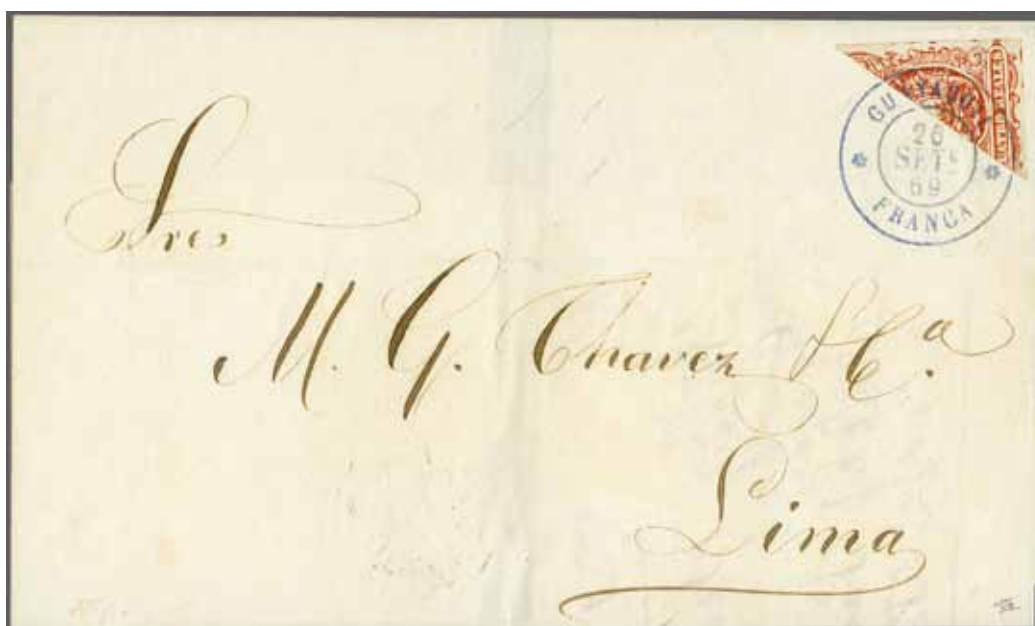 GUAYAQUIL
26
SETE
69
FRANCA
Sres
M. G. Chavez & Cª.
Lima